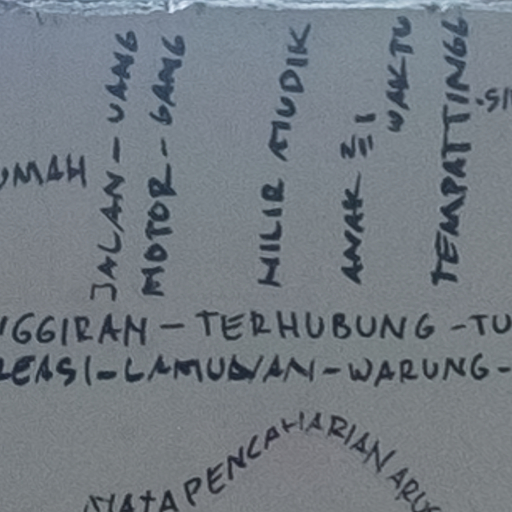 UMAH
JALAN - UANG
MOTOR - GANG
HILIR MUDIK
ANAK
WAKTU
TEMPATTINGG
.SI
GGIRAN - TERHUBUNG - TU
EASI - LAMUNAN - WARUNG -
MATA PENCAHARIAN ARUS